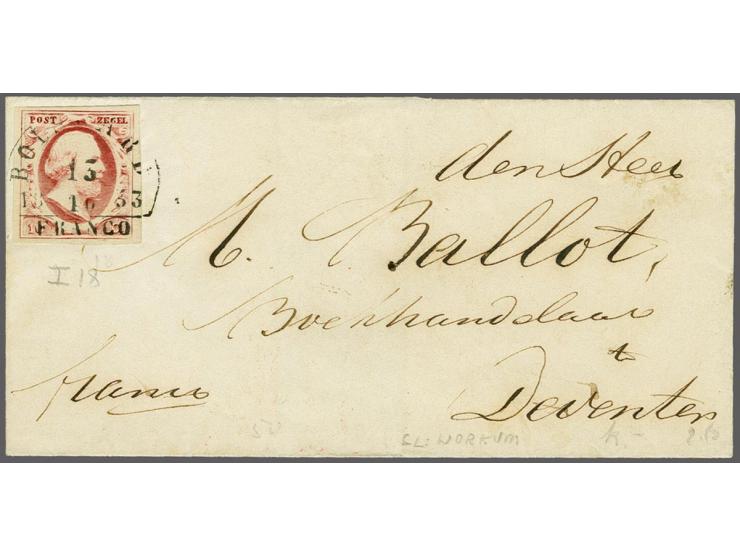 POST ZEGEL
15
10 53
FRANCO
den Heer
M. Ballot,
Boekhandelaar
te
Deventer
franco
I 18
50
CL: WORKUM
k.-